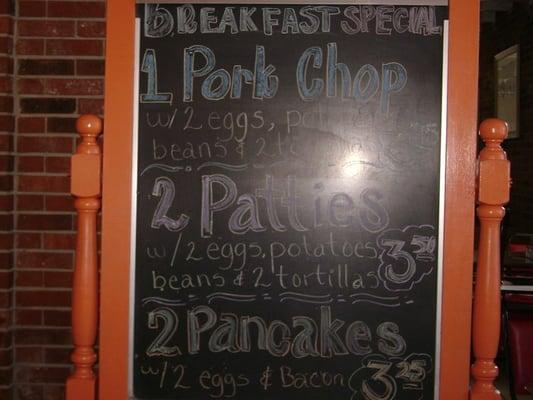 BREAKFAST SPECIAL
1 Pork Chop
w/ 2 eggs,
beans & 2
2 Patties
w/ 2 eggs, potatoes
beans & 2 tortillas
3.50
2 Pancakes
w/ 2 eggs & Bacon
3.25